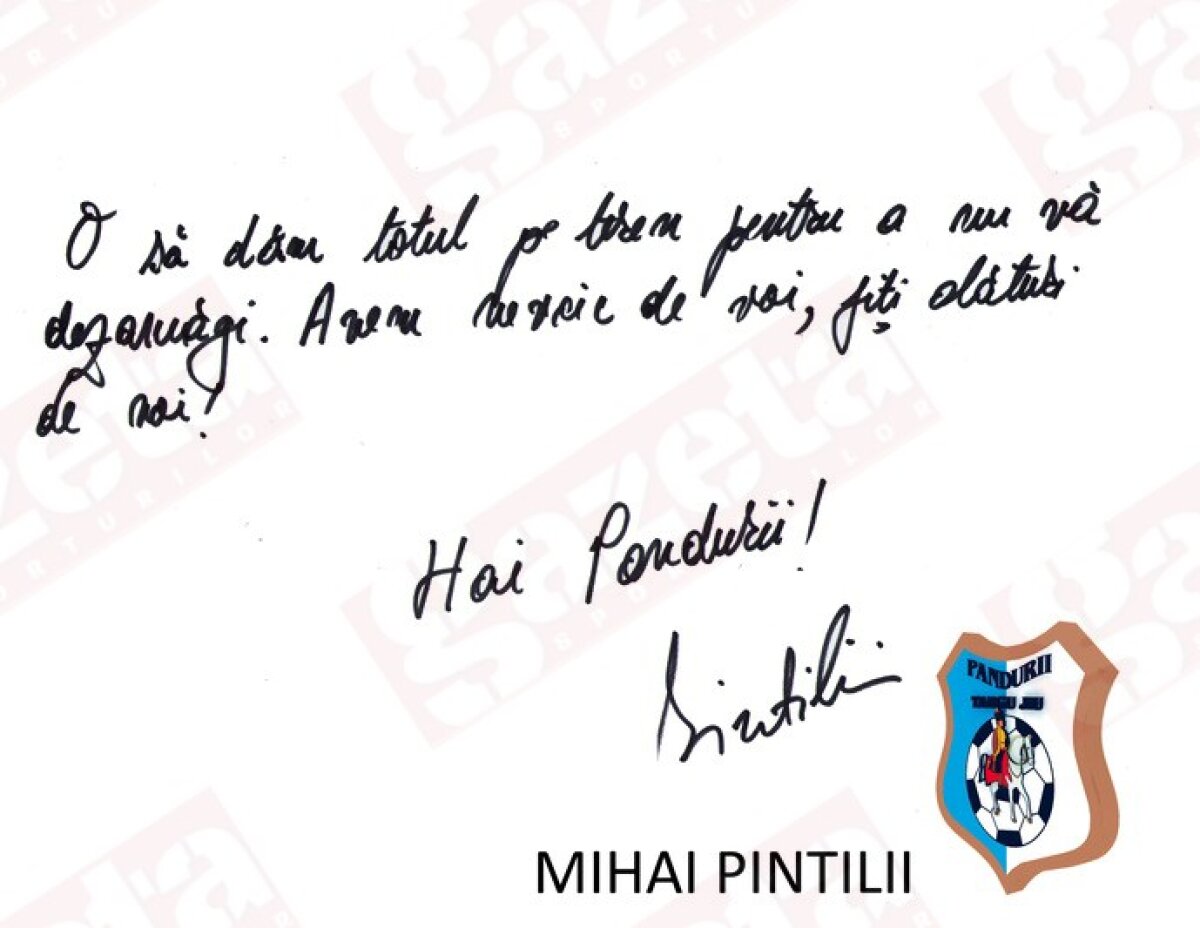 O să dăm totul pe teren pentru a nu vă
dezamăgi. Avem nevoie de voi, fiți alături
de noi!
Hai Pandurii!
Pintilii
PANDURII
TARGU JIU
MIHAI PINTILII
gazeta
SPORTURILOR